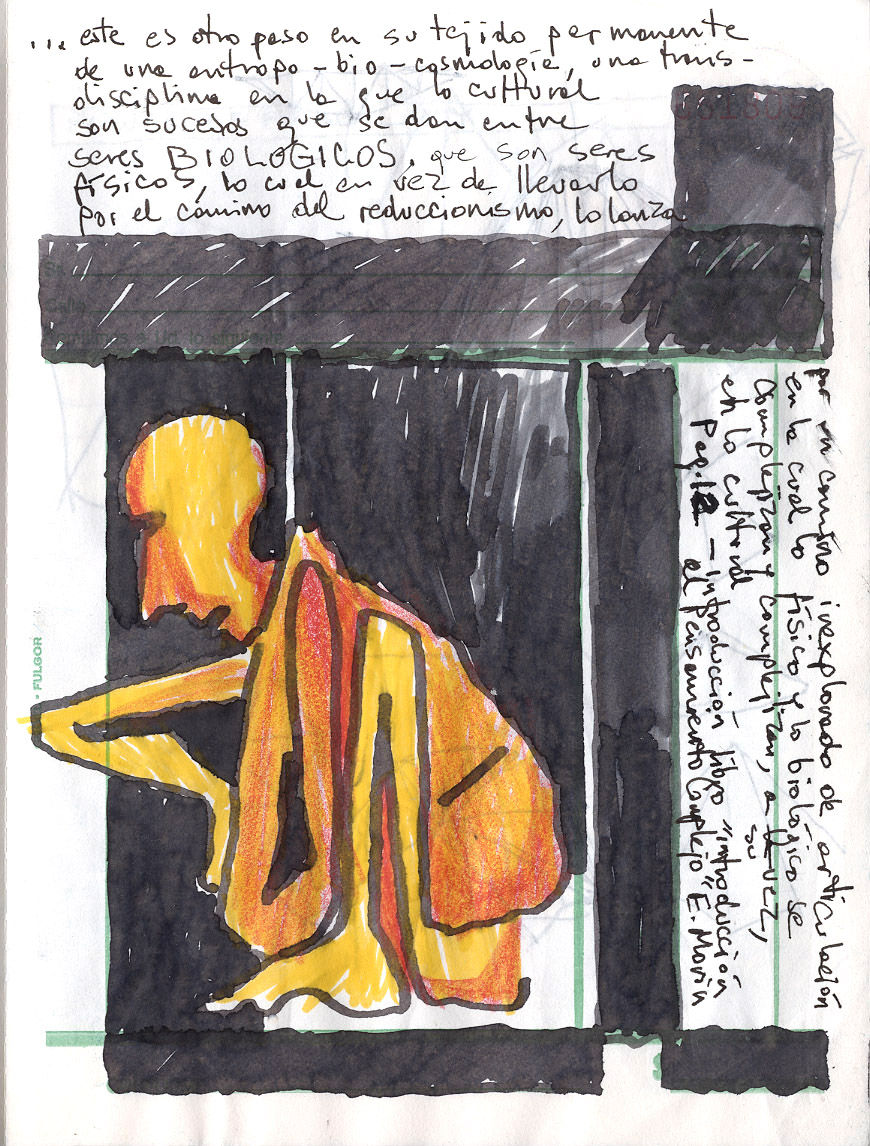 ... este es otro paso en su tejido permanente
de una antropo-bio-cosmología, una trans-
disciplina en la que lo cultural
son sucesos que se dan entre
seres BIOLOGICOS, que son seres
físicos, lo cual en vez de llevarlo
por el camino del reduccionismo, lo lanza
por un camino inexplorado de articulación
en la cual lo físico y lo biológico se
complejizan y complejizan, a su vez,
en lo cultural
Pag. 12 - Introducción libro "introducción
al Pensamiento Complejo" E. Morin
FULGOR